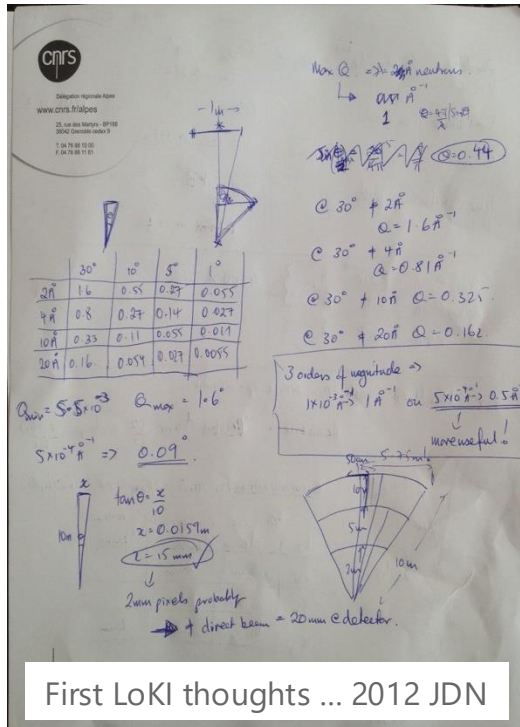 cnrs
Délégation régionale Alpes
www.cnrs.fr/alpes
25, rue des Martyrs - BP166
38042 Grenoble cedex 9
T. 04 76 88 10 00
F. 04 76 88 11 61
Max Q => λ= 2Å neutrons.
Å⁻¹
1
Q=0.44
-1m->
@ 30° + 2Å
Q=1.6Å⁻¹
@ 30° + 4Å
Q=0.81Å⁻¹
@ 30° + 10Å Q=0.325
@ 30° + 20Å Q=0.162
30° 10° 5° 1°
2Å 1.6 0.55 0.27 0.055
4Å 0.8 0.27 0.14 0.027
10Å 0.33 0.11 0.055 0.011
20Å 0.16 0.054 0.027 0.0055
Qmin = 5.5x10⁻³ Qmax = 1.6
3 orders of magnitude =>
1x10⁻³Å⁻¹ → 1Å⁻¹ or 5x10⁻⁴Å⁻¹ → 0.5Å
more useful!
5x10⁻⁴Å⁻¹ => 0.09°
x
10m
tanθ = x/10
x = 0.0159m
x = 15mm
2mm pixels probably
+ direct beam = 20mm @ detector.
50cm
5.75m!
10m
5m
2m
10m
First LoKI thoughts ... 2012 JDN